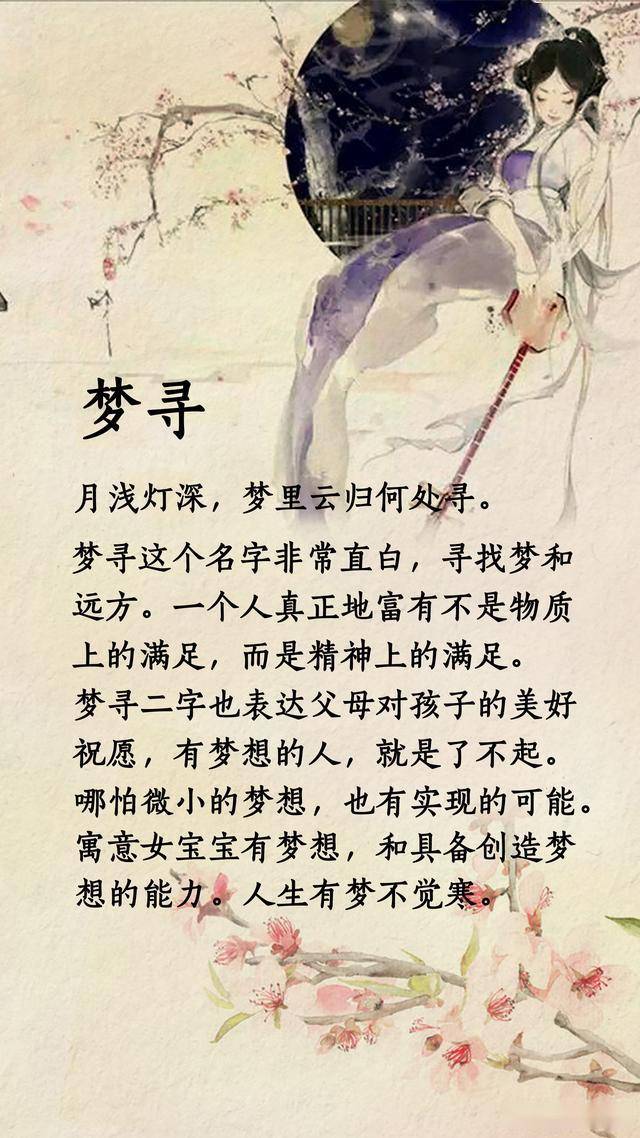 梦寻
月浅灯深，梦里云归何处寻。
梦寻这个名字非常直白，寻找梦和
远方。一个人真正地富有不是物质
上的满足，而是精神上的满足。
梦寻二字也表达父母对孩子的美好
祝愿，有梦想的人，就是了不起。
哪怕微小的梦想，也有实现的可能。
寓意女宝宝有梦想，和具备创造梦
想的能力。人生有梦不觉寒。